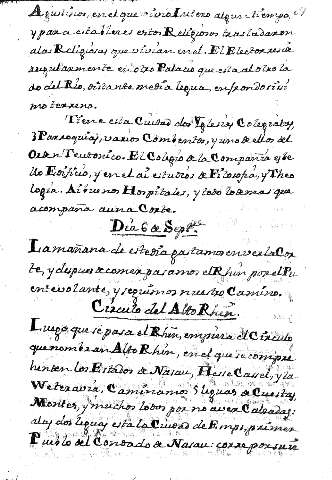 Agustinos, en el que vivio Lutero algun tiempo,
y para establecer estos Religiosos trasladaron
a las Religiosas que vivian en el. El Elector reside
regularmente en otro Palacio que esta al otro la
do del Rio, distante media legua en frondosisi
mo terreno.
Tiene esta Ciudad dos Yglesias Colegiatas,
3 Parroquias, varios Combentos, y uno de ellos del
Orden Teutonico. El Colegio de la Compañia es be
llo Edificio, y en el ai estudios de Filosofia, y Theo
logia. Ai buenos Hospitales, y todo lo demas que
acompaña a una Corte.
Dia 6 de Septre
La mañana de este dia gastamos en ver la Cor
te, y despues de comer pasamos el Rhin por el Pu
ente volante, y seguimos nuestro Camino.
Circulo del Alto Rhin.
Luego que se pasa el Rhin, empieza el Circulo
que nombran Alto Rhin, en el que se compre
henden los Estados de Nasau, Hesse Casel, y la
Weteravia. Caminamos 5 leguas de Cuestas,
Montes, y muchos lodos por no aver Calzadas:
a las dos leguas esta la Ciudad de Emps, primer
Pueblo del Condado de Nasau: corre por su in